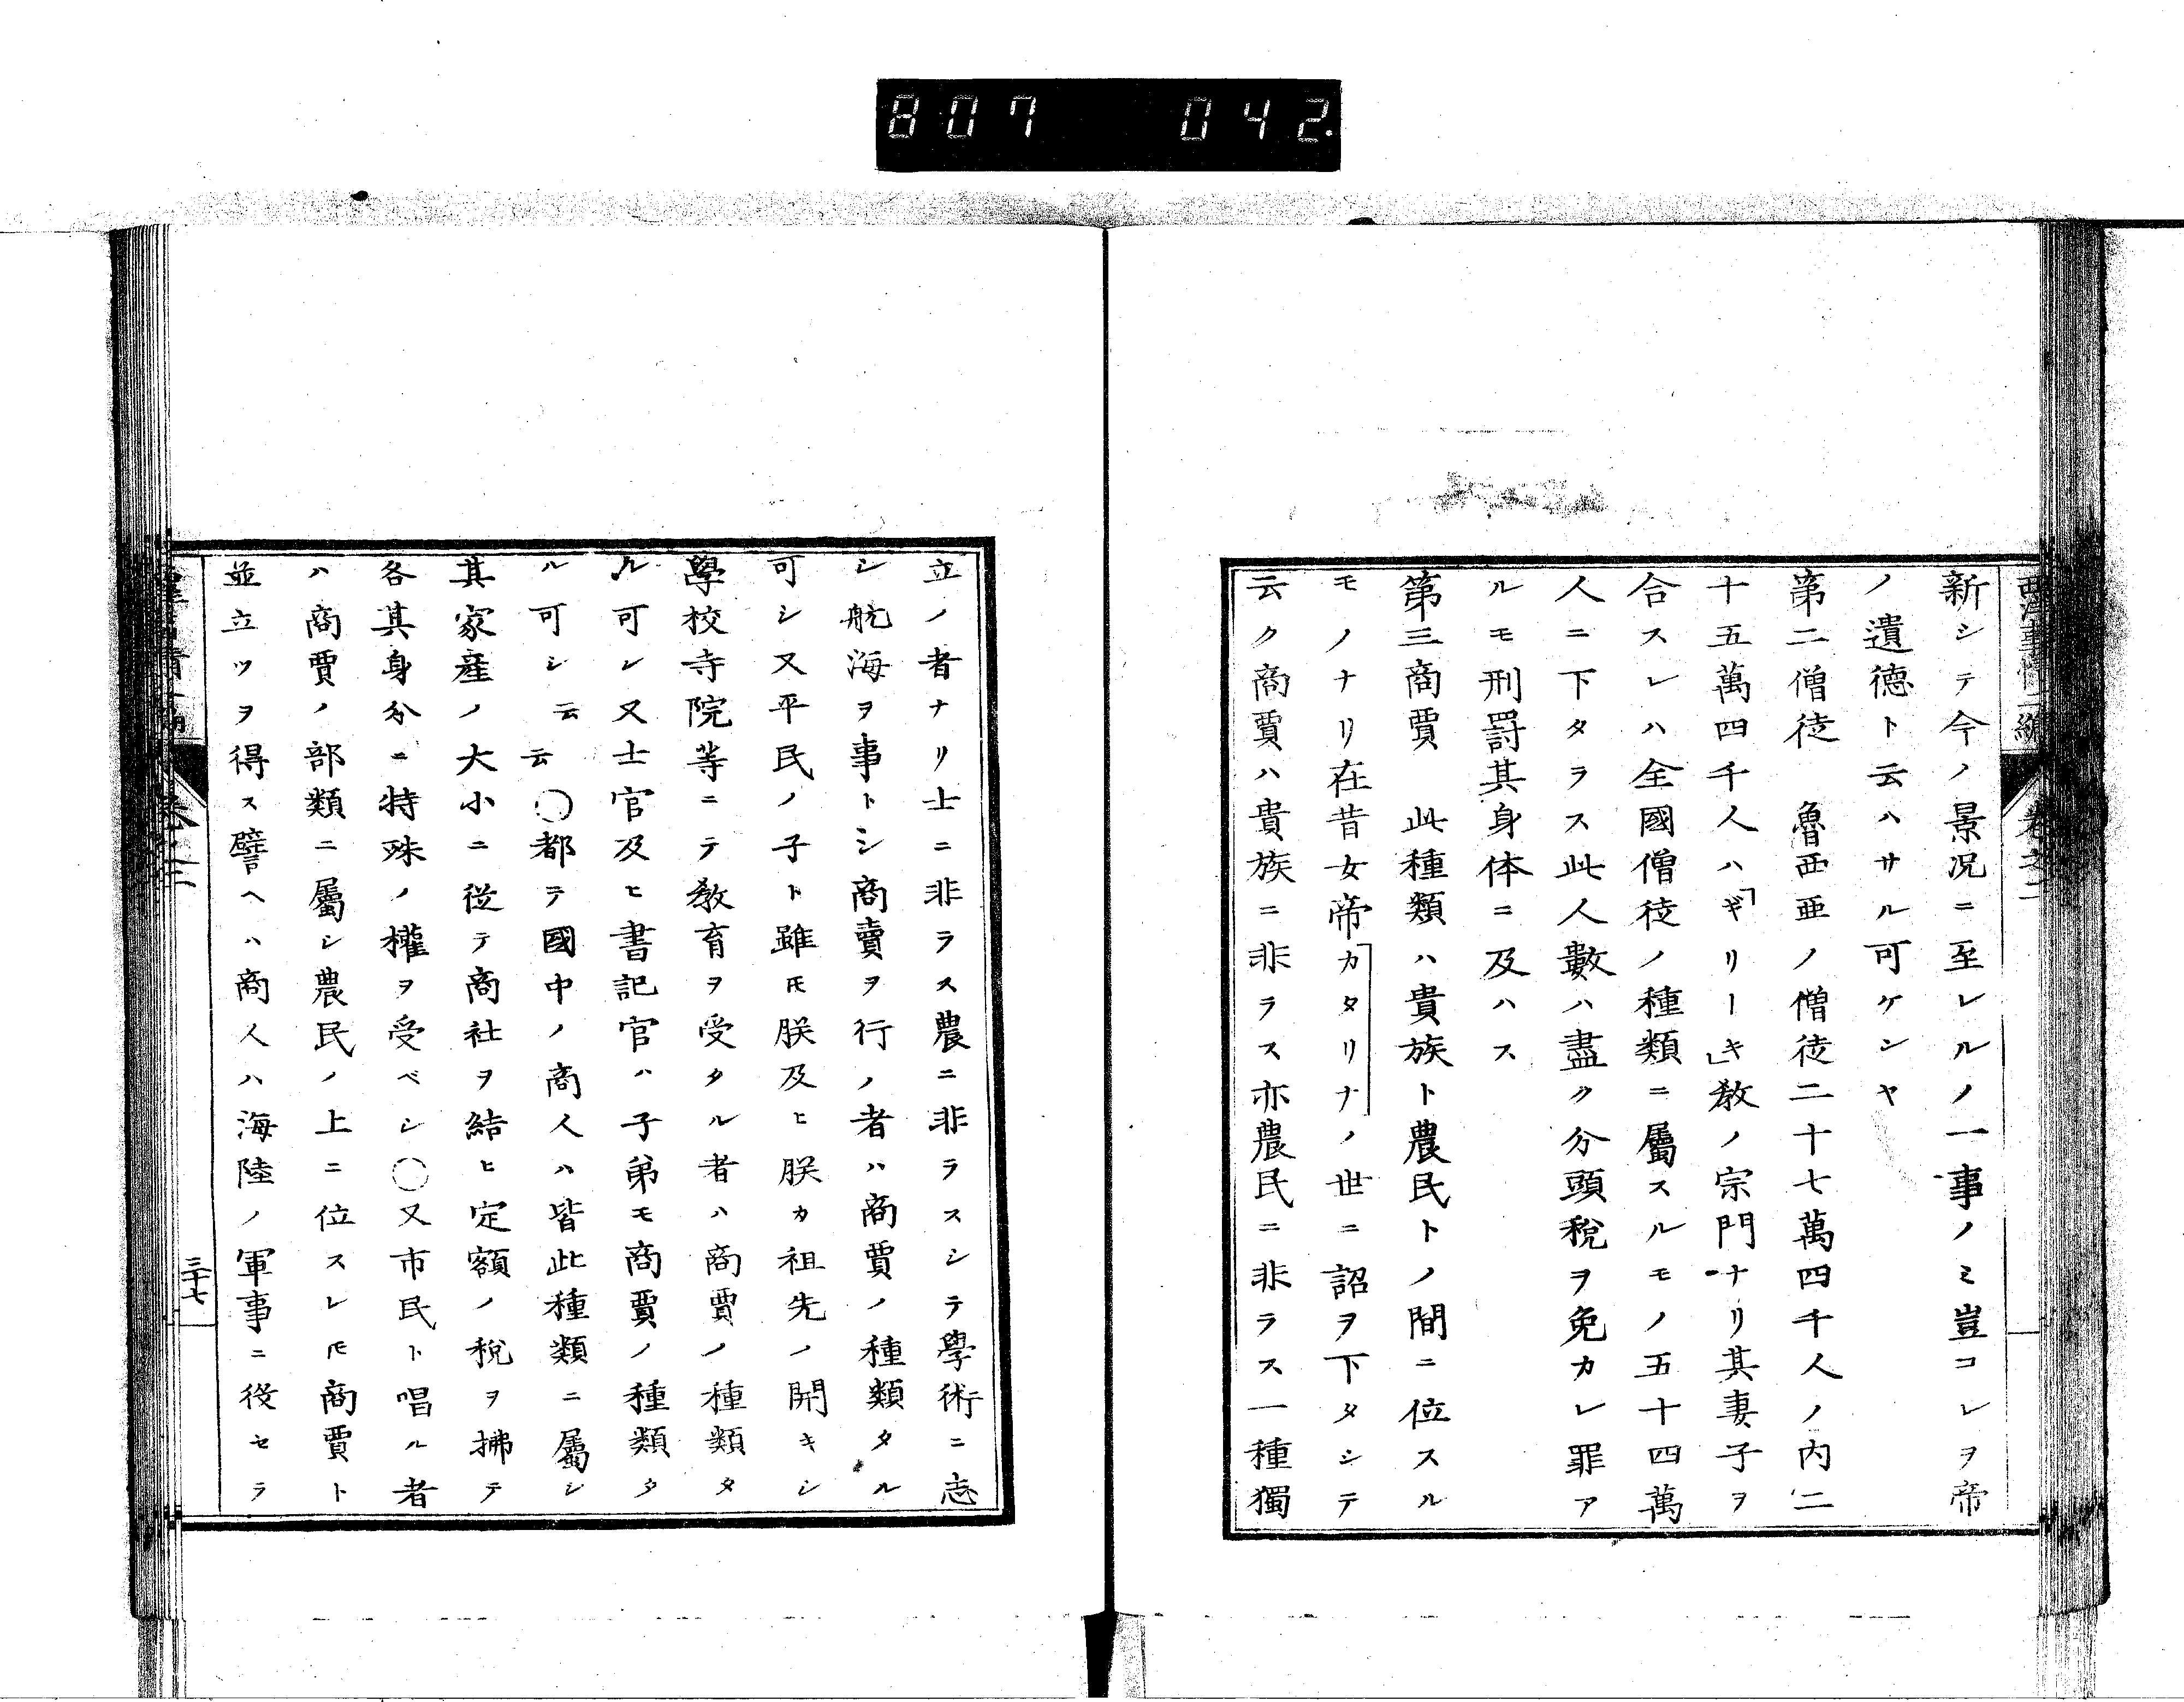 807 042.
西洋事情二編 卷之二
新シテ今ノ景況ニ至レルノ一事ノミ豈コレヲ帝
ノ遺德ト云ハサル可ケンヤ
第二僧徒 魯西亜ノ僧徒二十七萬四千人ノ内二
十五萬四千人ハ「ギリーキ」教ノ宗門ナリ其妻子ヲ
合スレハ全國僧徒ノ種類ニ屬スルモノ五十四萬
人ニ下タラス此人數ハ盡ク分頭稅ヲ免カレ罪ア
ルモ刑罰其身体ニ及ハス
第三商賈 此種類ハ貴族ト農民トノ間ニ位スル
モノナリ在昔女帝カタリナノ世ニ詔ヲ下タシテ
云ク商賈ハ貴族ニ非ラス亦農民ニ非ラス一種獨
立ノ者ナリ士ニ非ラス農ニ非ラスシテ學術ニ志
シ航海ヲ事トシ商賣ヲ行ノ者ハ商賈ノ種類タル
可シ又平民ノ子ト雖𪜈朕及ヒ朕カ祖先ノ開キシ
學校寺院等ニテ敎育ヲ受タル者ハ商賈ノ種類タ
ル可レ又士官及ヒ書記官ハ子弟モ商賈ノ種類タ
ル可シ云云○都テ國中ノ商人ハ皆此種類ニ屬シ
其家產ノ大小ニ從テ商社ヲ結ヒ定額ノ稅ヲ拂テ
各其身分ニ特殊ノ權ヲ受ベシ○又市民ト唱ル者
ハ商賈ノ部類ニ屬シ農民ノ上ニ位スレ𪜈商賈ト
並立ツヲ得ス譬ヘハ商人ハ海陸ノ軍事ニ役セラ
三十七